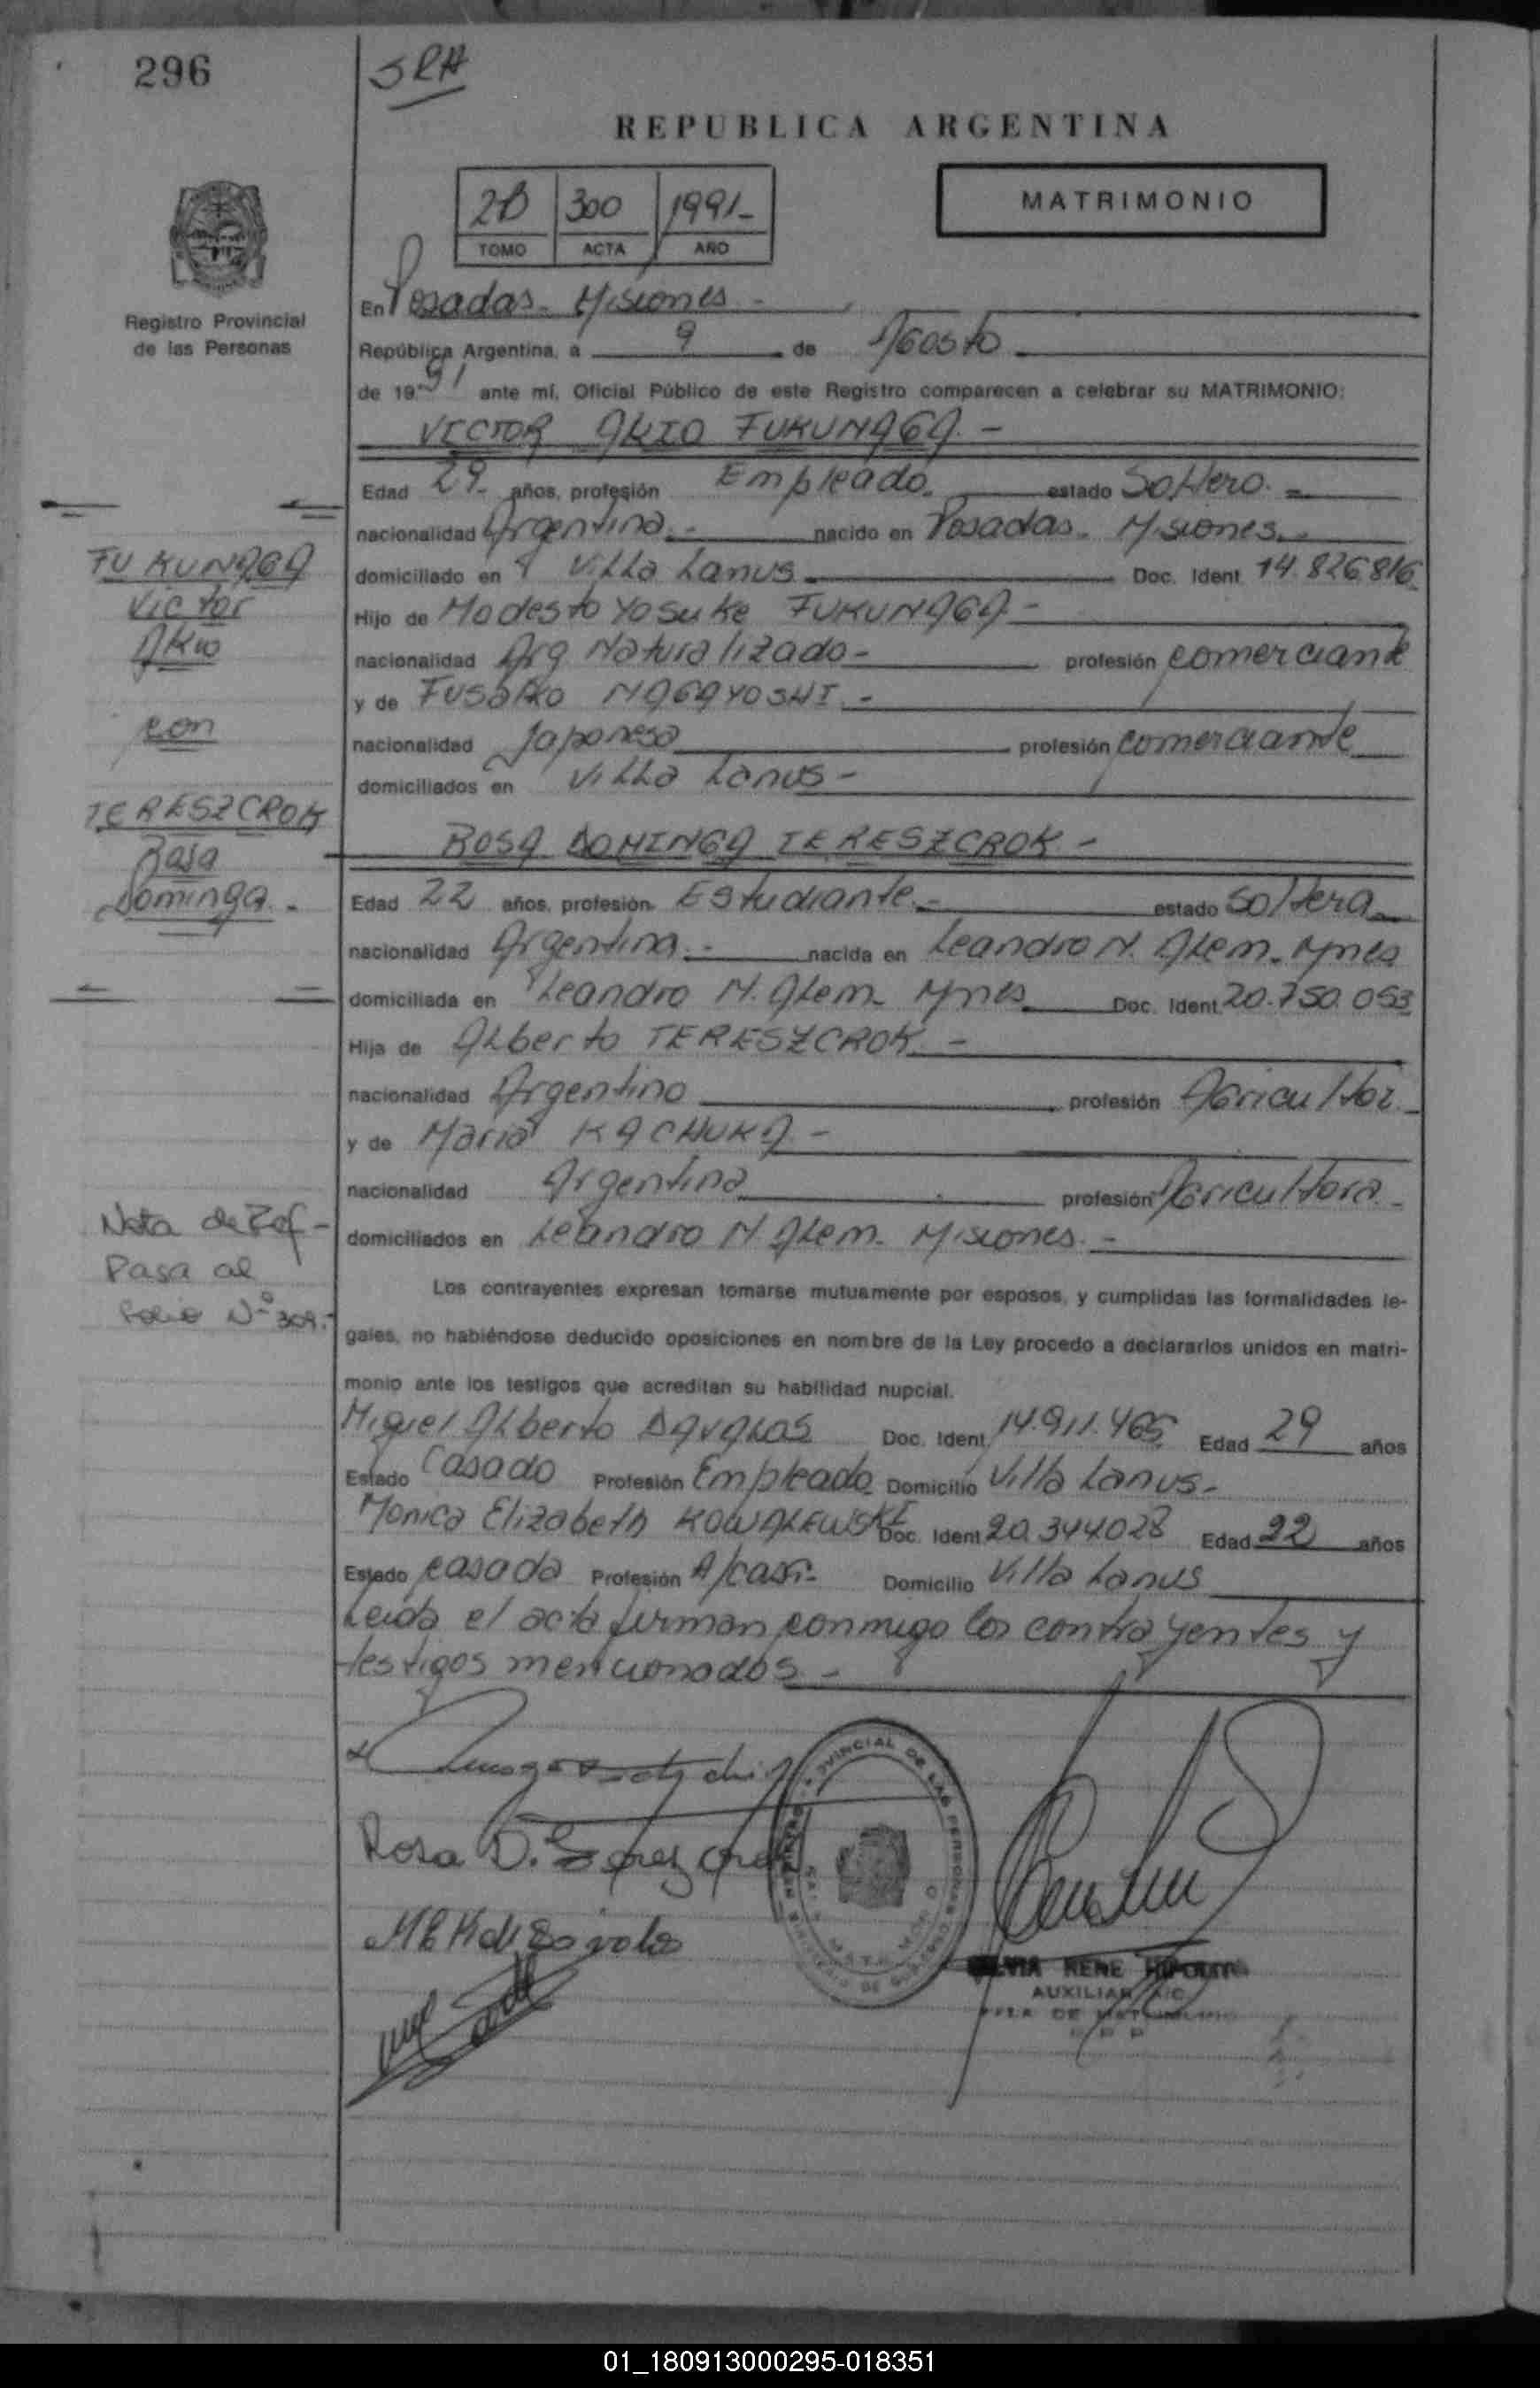 296
SRA
REPUBLICA ARGENTINA
2B 300 1991-
TOMO ACTA AÑO
MATRIMONIO
Registro Provincial
de las Personas
En Posadas - Misiones -
República Argentina, a 9 de Agosto
de 1991 ante mí, Oficial Público de este Registro comparecen a celebrar su MATRIMONIO:
VICTOR AKIO FUKUNAGA -
Edad 29- años, profesión Empleado. estado Soltero. -
nacionalidad Argentina. - nacido en Posadas - Misiones. -
domiciliado en Villa Lanus Doc. Ident. 14.826.816
Hijo de Modesto Yosuke FUKUNAGA -
nacionalidad Arg. Naturalizado - profesión comerciante
y de FUSAKO NAGAYOSHI. -
nacionalidad Japonesa profesión comerciante
domiciliados en Villa Lanus -
FUKUNAGA
Victor
Akio
con
TERESZCROK
Rosa
Dominga. -
ROSA DOMINGA TERESZCROK -
Edad 22 años, profesión Estudiante. - estado Soltera
nacionalidad Argentina. - nacida en Leandro N. Alem - Mnes
domiciliada en Leandro N. Alem - Mnes Doc. Ident. 20.750.053
Hija de Alberto TERESZCROK. -
nacionalidad Argentino profesión Agricultor. -
y de Maria KACHUKA -
nacionalidad Argentina profesión Agricultora -
domiciliados en Leandro N. Alem - Misiones. -
Nota de Ref -
Pasa al
Folio Nº 309. -
Los contrayentes expresan tomarse mutuamente por esposos, y cumplidas las formalidades le-
gales, no habiéndose deducido oposiciones en nombre de la Ley procedo a declararlos unidos en matri-
monio ante los testigos que acreditan su habilidad nupcial.
Miguel Alberto DAVALOS Doc. Ident. 14.911.465 Edad 29 años
Estado Casado Profesión Empleado Domicilio Villa Lanus -
Monica Elizabeth KOWALEWSKI Doc. Ident. 20.344.028 Edad 22 años
Estado casada Profesión A/casa. - Domicilio Villa Lanus
Leida el acta firman conmigo los contrayentes y
testigos mencionados. -
Rosa D.
PROVINCIAL DE LAS PERSONAS
RENE HIPOLITO
AUXILIAR A/C
DE MATRIMONIO
01_180913000295-018351